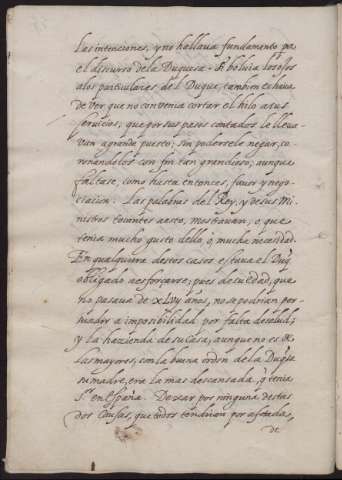 las intenciones, y no hallaua fundamento pa
el discurso de la Duquesa. Si boluia los ojos
a los particulares del Duque, tambien echaua
de ver que no conuenia cortar el hilo a sus
seruicios, que por sus pasos contados le lleua
van a grande puesto; sin podersele negar, co
ronandolos con fin tan grandioso; aunque
faltase, como hasta entonces, fauor y nego
ciacion. Las palabras del Rey, y de sus Mi
nistros tocantes a esto, mostrauan, o que
tenia mucho gusto dello, o mucha necesidad.
En qualquiera destos casos estaua el Duq
obligado a esforçarse; pues de su edad, que
no pasaua de XLVJ años, no se podrian per
suadir a imposibilidad por falta de salud;
y la hazienda de su casa, aunque no es de
las mayores, con la buena orden de la Duqsa
su madre, era la mas descansada, q tenia
Sr. en España. Dexar por ninguna destas
dos causas, que todos tendrian por afectadas,
de